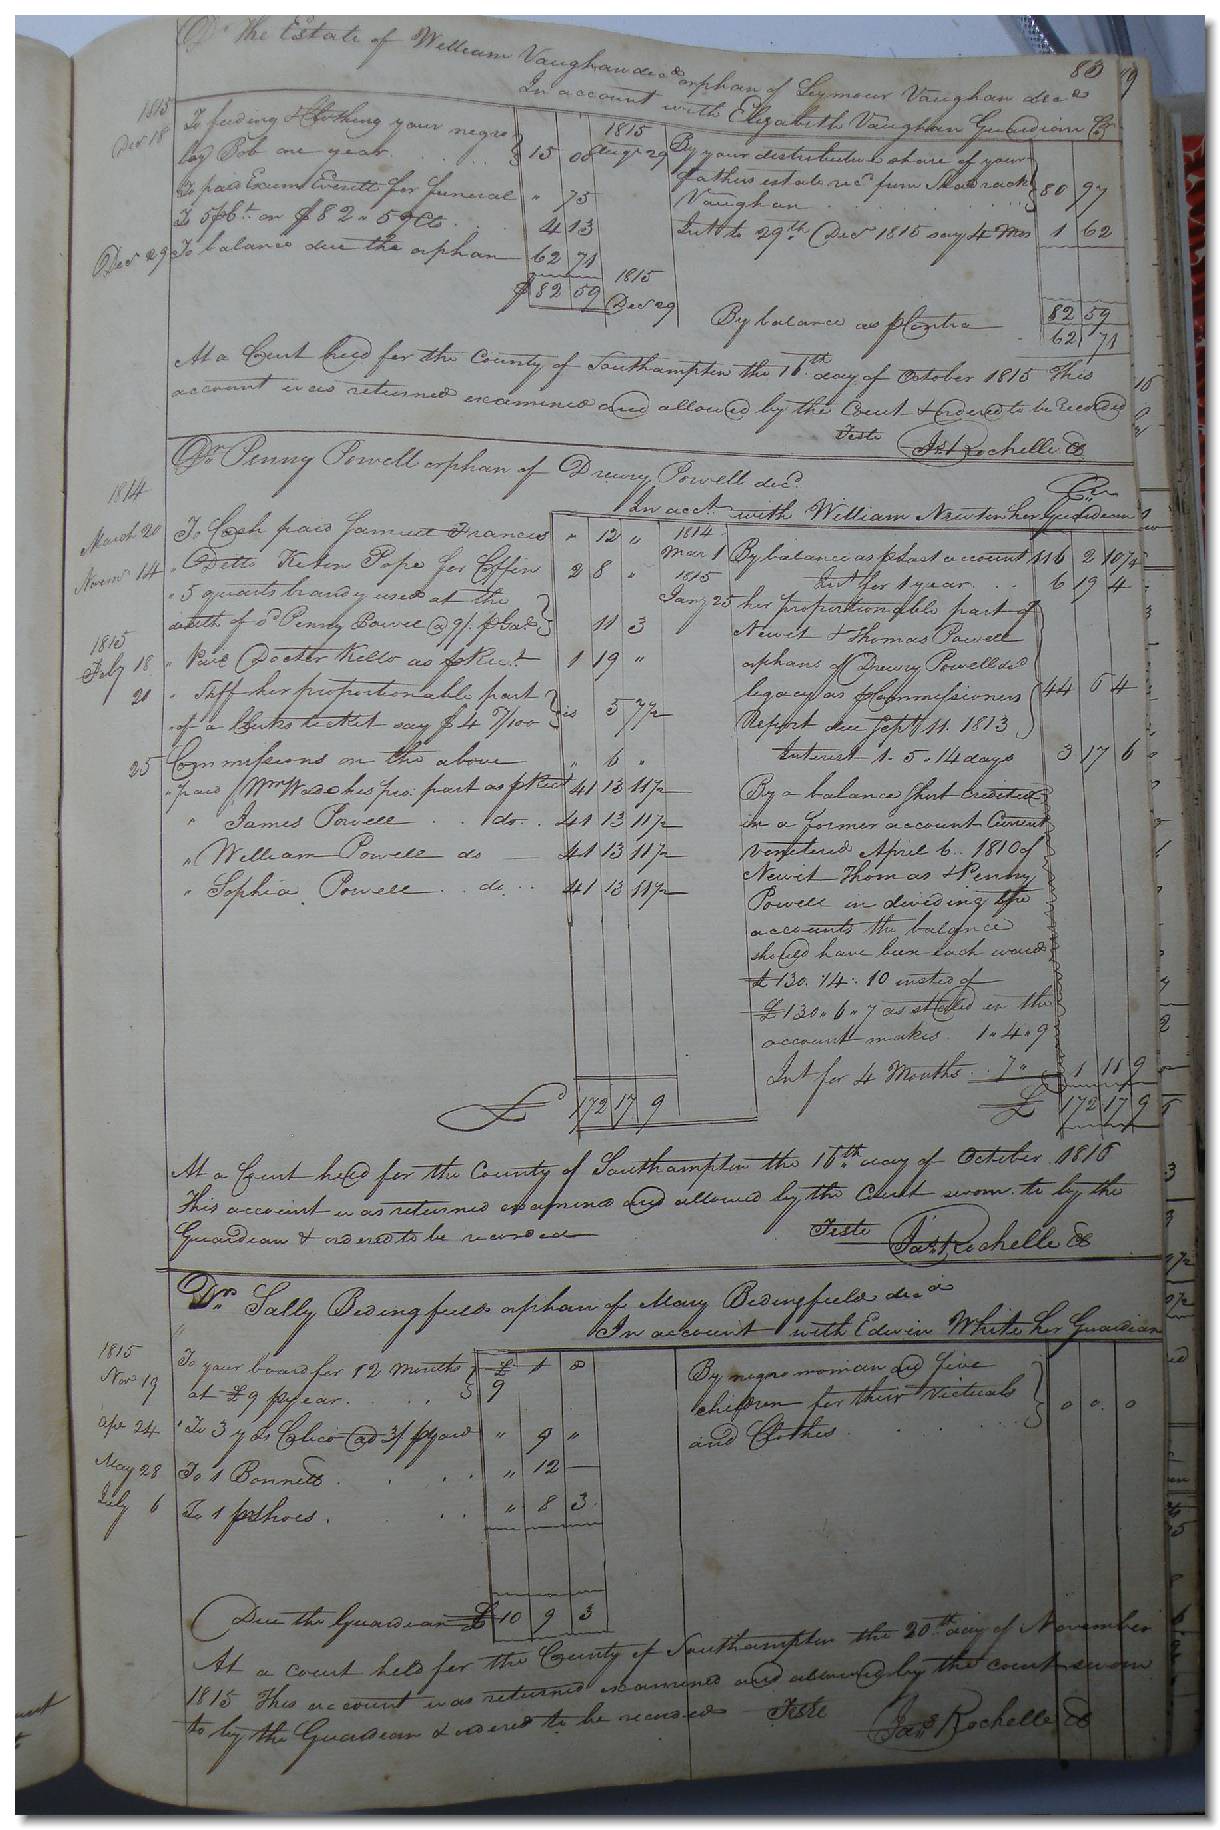 Dr The Estate of William Vaughan decd orphan of Seymour Vaughan decd
83
In account with Elizabeth Vaughan Guardian Cr
1815
Decr 18 To feeding & Clothing your negro
boy Bob one year 15 00
To paid Exum Everitt for funeral " 75
To 5 pCt. on $82.59 Cts 4 13
Decr 29 To balance due the orphan 62 71
$ 82 59
1815
Augt 29 By your distributive share of your
fathers estate recd from Shadrack 80 97
Vaughan
Intt to 29th Decr 1815 say 4 Mos 1 62
82 59
1815
Decr 29 By balance as pContra 62 71
At a Court held for the County of Southampton the 16th day of October 1815 This
account was returned examined and allowed by the Court & ordered to be recorded
Teste Jas Rochelle Cl
Dr Penny Powell orphan of Drewry Powell decd
Cr
In acct. with William Newton her Guardian
1814
March 20 To Cash paid Samuel Francis " 12 "
Novemr 14 " Ditto Kitchen Pope for Coffin 2 8 "
" 5 quarts brandy used at the
death of sd Penny Powell @ 9/. pGal 11 3
1815
Feby 18 " Paid Docter Kello as pRect 1 19 "
20 " Shff her proportionable part
of a Clerks ticket say $4 5 7½
25 Commissions on the above " 6 "
" paid Wm Wade his pro: part as pRect 41 13 11½
" James Powell . . do. . 41 13 11½
" William Powell do 41 13 11½
" Sophia Powell . . do . . 41 13 11½
£ 172 17 9
1814
Mar 1 By balance as pLast account 116 2 10¾
Intt for 1 year 6 19 4
1815
Jany 25 her proportionable part of
Newit & Thomas Powell
orphans of Drewry Powell decd
legacy as pCommissioners 44 6 4
Report due Septr 11. 1813
Interest 1. 5. 14 days 3 17 6
By a balance Short Credited
in a former account Current
rendered April 6.. 1810 of
Newit Thomas & Penny
Powell in deviding the
accounts the balance
should have been each ward
£ 130. 14. 10 insted of
£ 130. 6. 7 as stated in the
account makes 1. 4. 9
Intt for 4 Months . . 7 " 1 11 9
£ 172 17 9
At a Court held for the County of Southampton the 16th day of October 1815
This account was returned examined and allowed by the Court sworn to by the
Guardian & ordered to be recorded
Teste Jas Rochelle Cl
Dr Sally Bedingfield orphan of Mary Bedingfield decd
In account with Edwin White her Guardian
1815
Novr 19 To your board for 12 Months £ s d
at £ 9 pyear 9
Apr 24 " To 3 yds Calico @ 3/ pyard " 9 "
May 28 To 1 Bonnett " 12 —
July 6 To 1 prShoes " 8 3
Due the Guardian £ 10 9 3
By negro woman and five
children for their victuals 0 0. 0
and Clothes
At a court held for the County of Southampton the 20th day of November
1815 This account was returned examined and allowed by the court sworn
to by the Guardian & ordered to be recorded Teste Jas Rochelle Cl